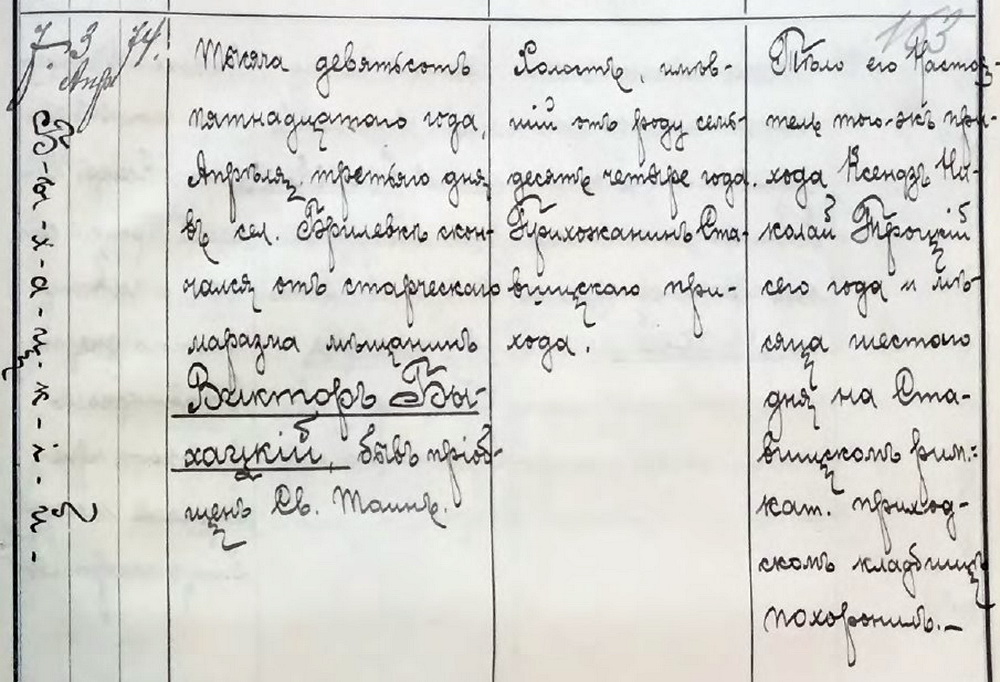 153
7. 3 74.
Апр
Б-ы-х-а-ц-к-і-й-
Тысяча девятьсотъ
пятнадцатого года,
Апрѣля третьяго дня
въ сел. Брилевкѣ скон-
чался отъ старческаго
маразма мѣщанинъ
Викторъ Бы-
хацкій, бывъ пріоб-
щенъ Св. Таинъ.
Холостъ, имѣв-
шій отъ роду семь-
десятъ четыре года.
Прихожанинъ Ста-
вищскаго при-
хода.
Тѣло его Настоя-
тель того-жъ при-
хода Ксендзъ Ни-
колай Троцкій
сего года и мѣ-
сяца шестого
дня на Ста-
вищскомъ рим.-
кат. приход-
скомъ кладбищѣ
похоронилъ.-